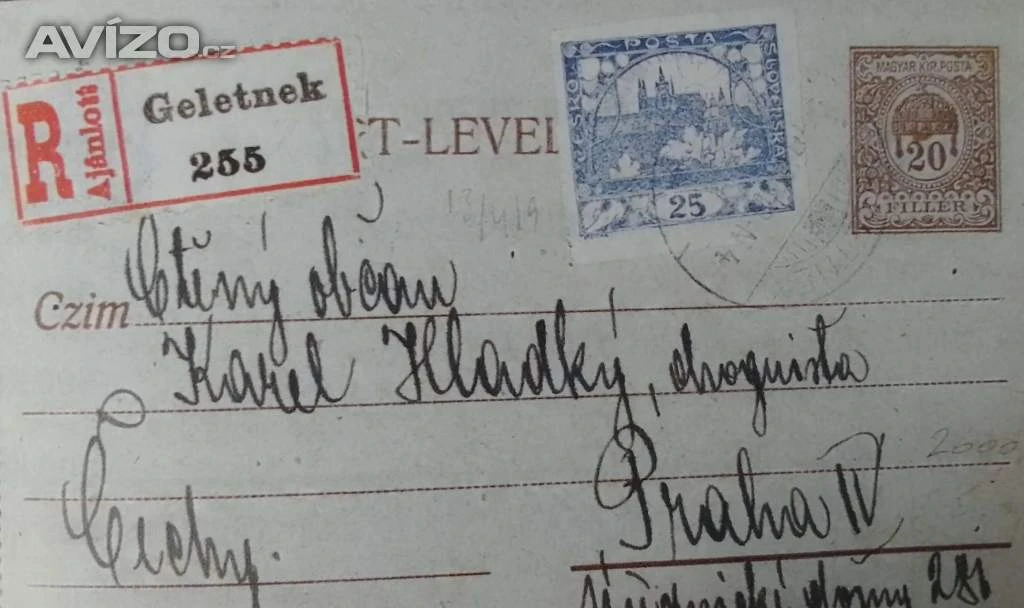 AVÍZO.cz
R Ajánlott
Geletnek
255
T-LEVEL
POSTA
ČESKO SLOVENSKÁ
25
MAGYAR KIR. POSTA
20
FILLER
13/4/19
Czim Ctěný občan
Karel Hladký, droguista
2000
Čechy.
Praha IV
281